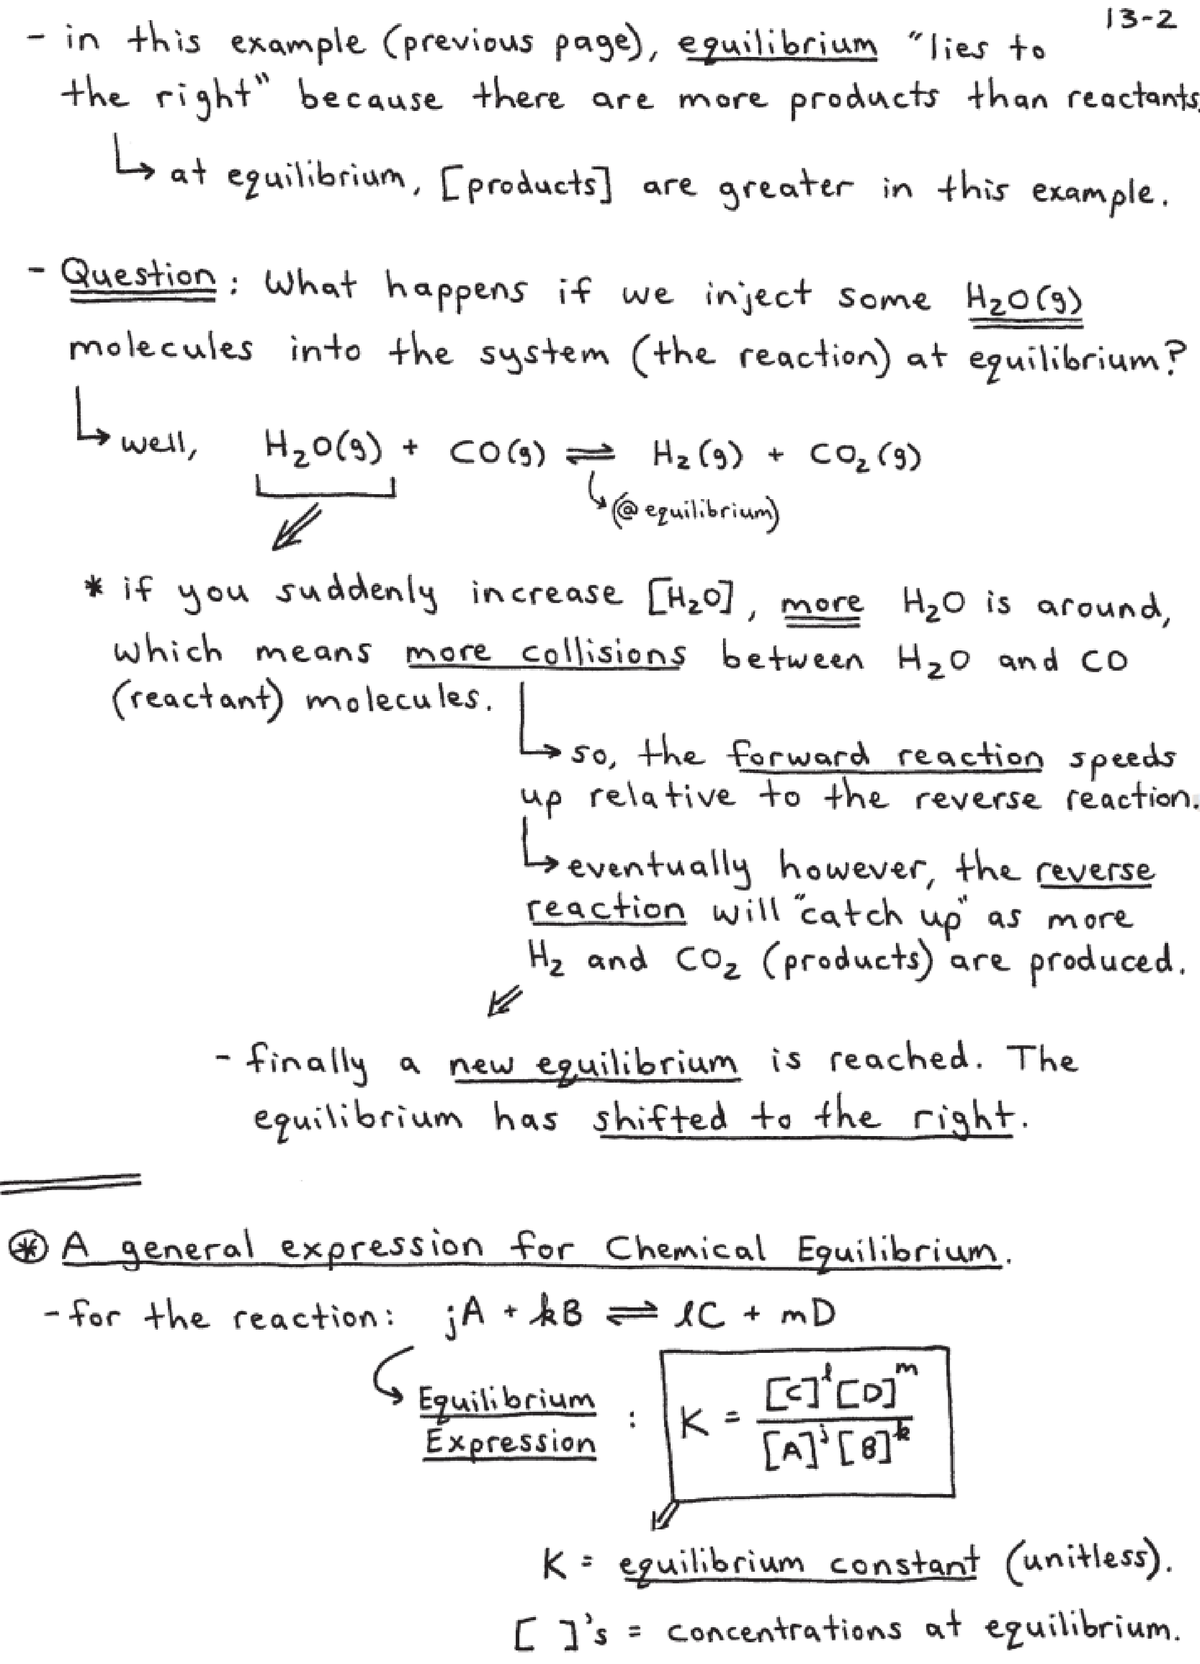 13-2
- in this example (previous page), equilibrium "lies to
the right" because there are more products than reactants.
↳ at equilibrium, [products] are greater in this example.
- Question: What happens if we inject some H₂O(g)
molecules into the system (the reaction) at equilibrium?
↳ well, H₂O(g) + CO(g) ⇌ H₂(g) + CO₂(g)
↳ (@ equilibrium)
* if you suddenly increase [H₂O], more H₂O is around,
which means more collisions between H₂O and CO
(reactant) molecules.
↳ so, the forward reaction speeds
up relative to the reverse reaction.
↳ eventually however, the reverse
reaction will "catch up" as more
H₂ and CO₂ (products) are produced.
- finally a new equilibrium is reached. The
equilibrium has shifted to the right.
⊛ A general expression for Chemical Equilibrium.
- for the reaction: jA + kB ⇌ lC + mD
Equilibrium
Expression : K = [C]^l [D]^m / [A]^j [B]^k
K = equilibrium constant (unitless).
[ ]'s = concentrations at equilibrium.